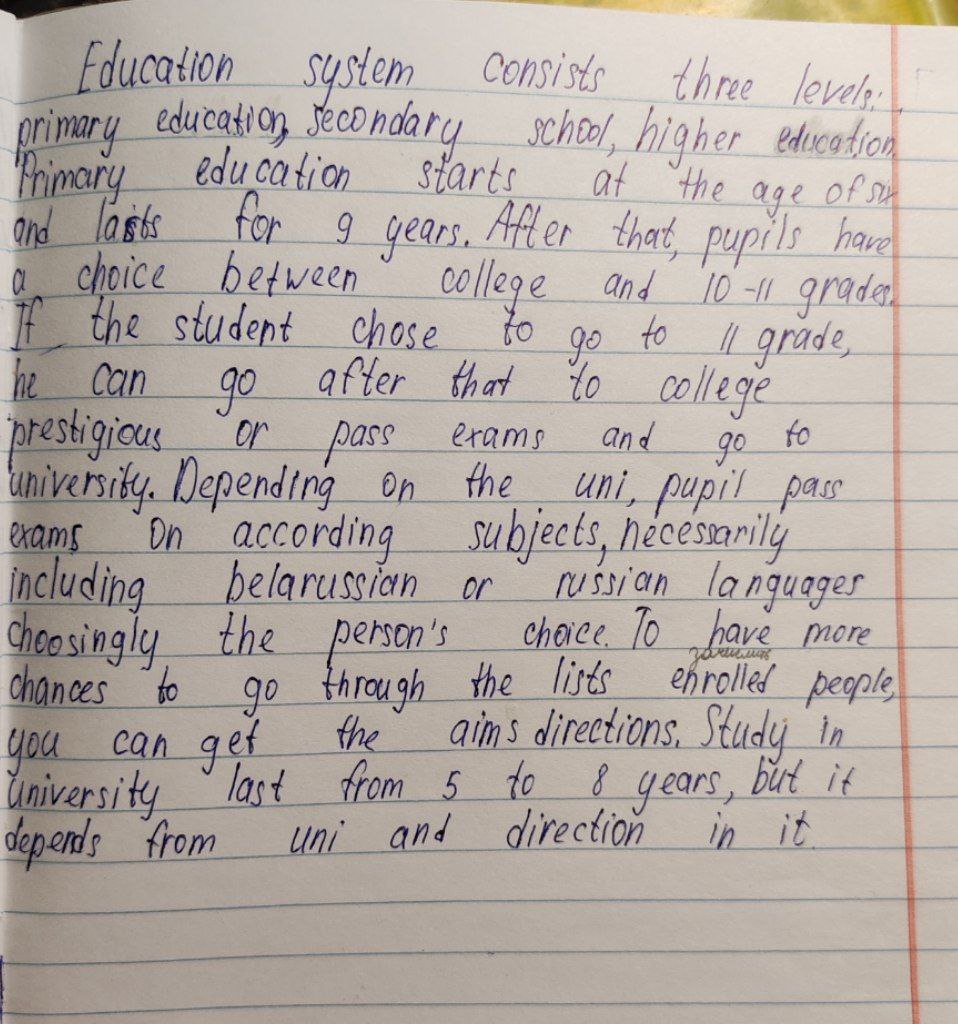 Education system consists three levels:
primary education, secondary school, higher education
Primary education starts at the age of six
and lasts for 9 years. After that, pupils have
a choice between college and 10-11 grades.
If the student chose to go to 11 grade,
he can go after that to college
prestigious or pass exams and go to
university. Depending on the uni, pupil pass
exams on according subjects, necessarily
including belarussian or russian languages
choosingly the person's choice. To have more
зачислить
chances to go through the lists enrolled people,
you can get the aims directions. Study in
university last from 5 to 8 years, but it
depends from uni and direction in it.